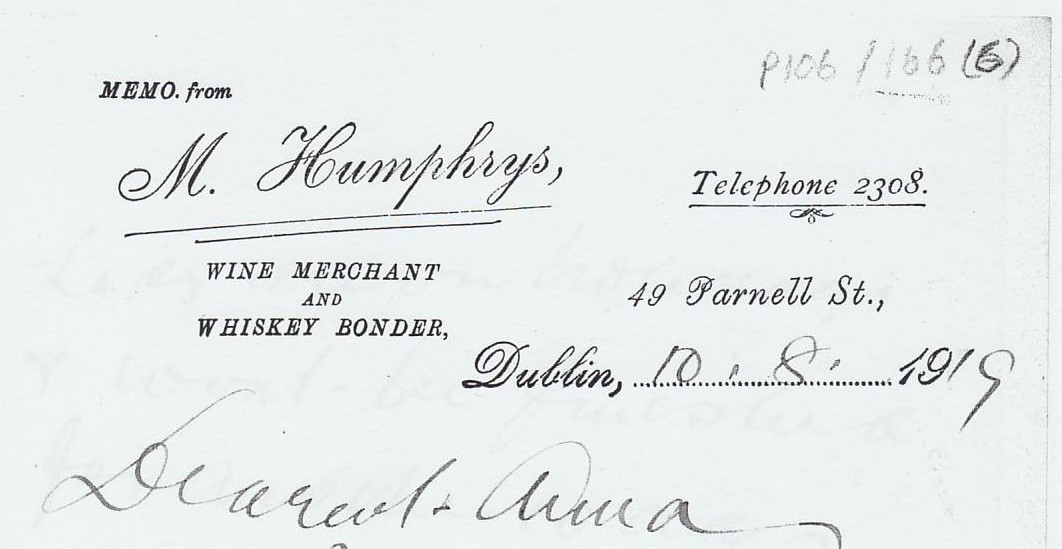 P106/166(6)
MEMO. from
M. Humphrys,
Telephone 2308.
WINE MERCHANT
AND
WHISKEY BONDER,
49 Parnell St.,
Dublin, 10.8.1919
Dearest Anna